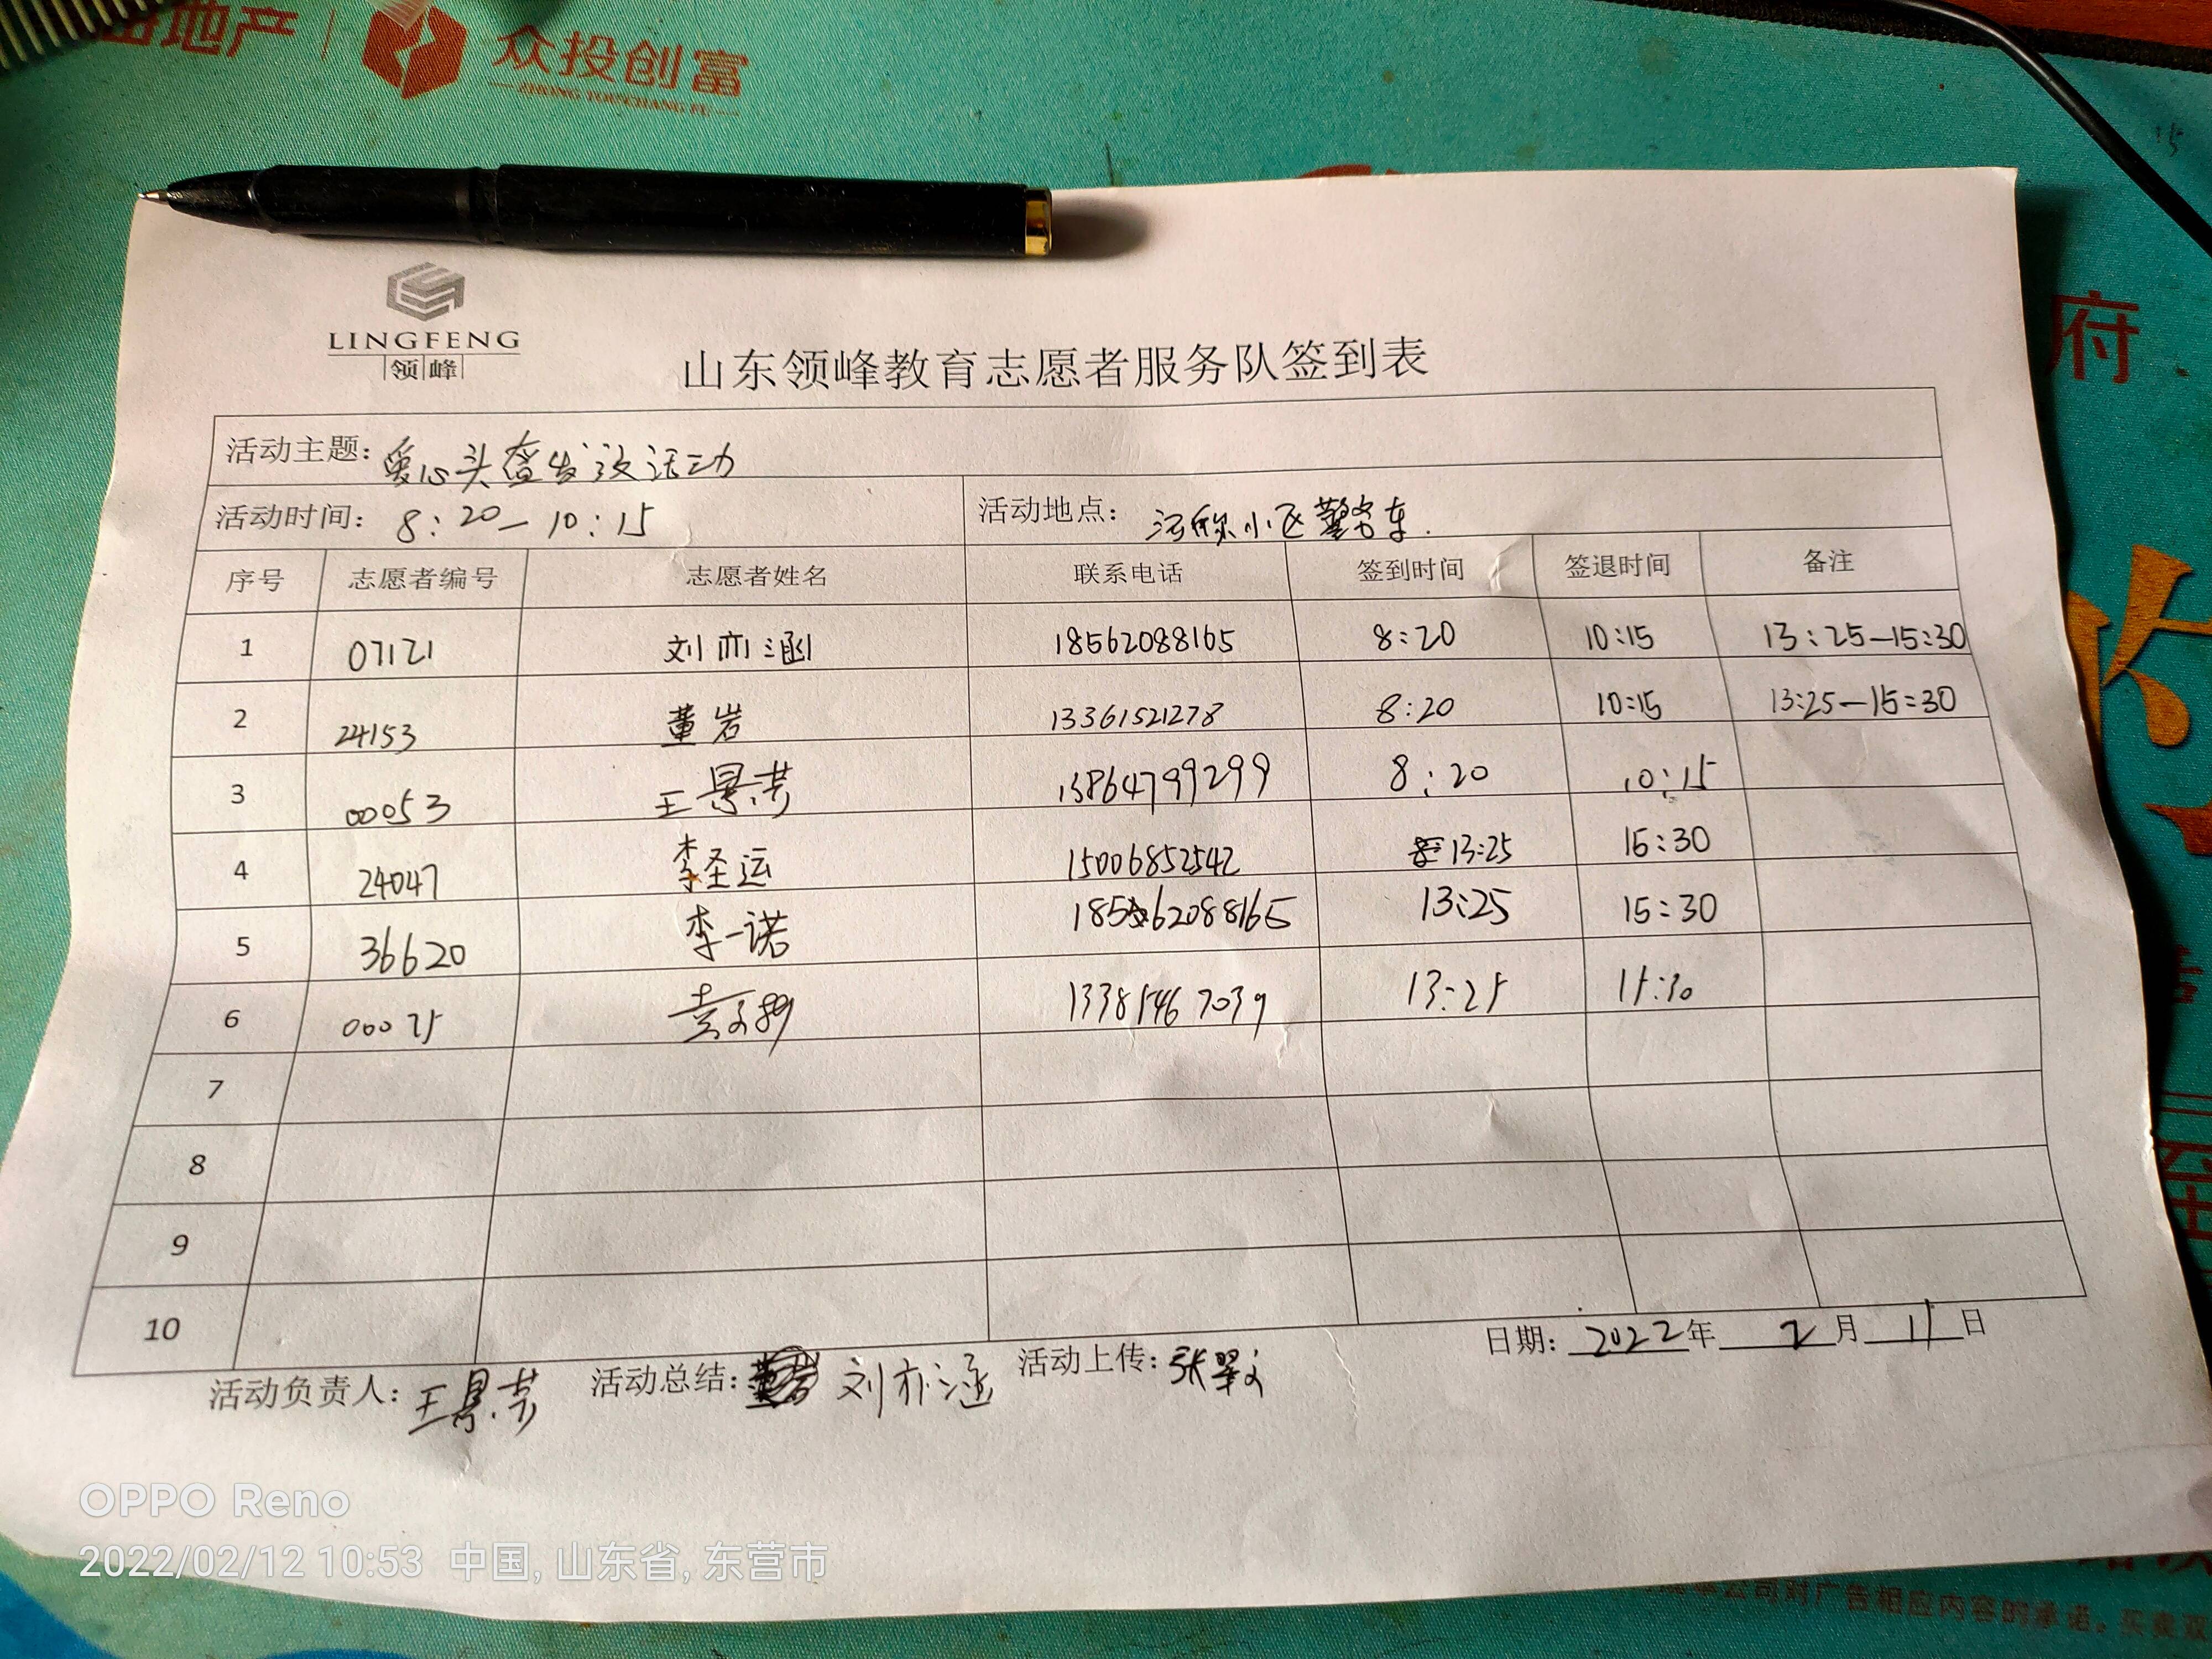 地产
众投创富
ZHONG TOU CHANG FU
府
LINGFENG
领峰
山东领峰教育志愿者服务队签到表
活动主题: 爱心头盔发放活动
活动时间: 8:20—10:15 活动地点: 小区警务车.
序号 志愿者编号 志愿者姓名 联系电话 签到时间 签退时间 备注
1 07121 刘亦涵 18562088165 8:20 10:15 13:25—15:30
2 24153 董岩 13361521278 8:20 10:15 13:25—15:30
3 00053 王景芳 13864799299 8:20 10:15
4 24047 李圣运 15006852542 13:25 15:30
5 36620 李一诺 18562088165 13:25 15:30
6 00025 13385467039 13:25 15:30
7
8
9
10
日期: 2022年 2月 11日
活动负责人: 王景芳 活动总结: 刘亦涵 活动上传: 张翠文
OPPO Reno
2022/02/12 10:53 中国, 山东省, 东营市
公司对广告相应内容的承诺。买卖双